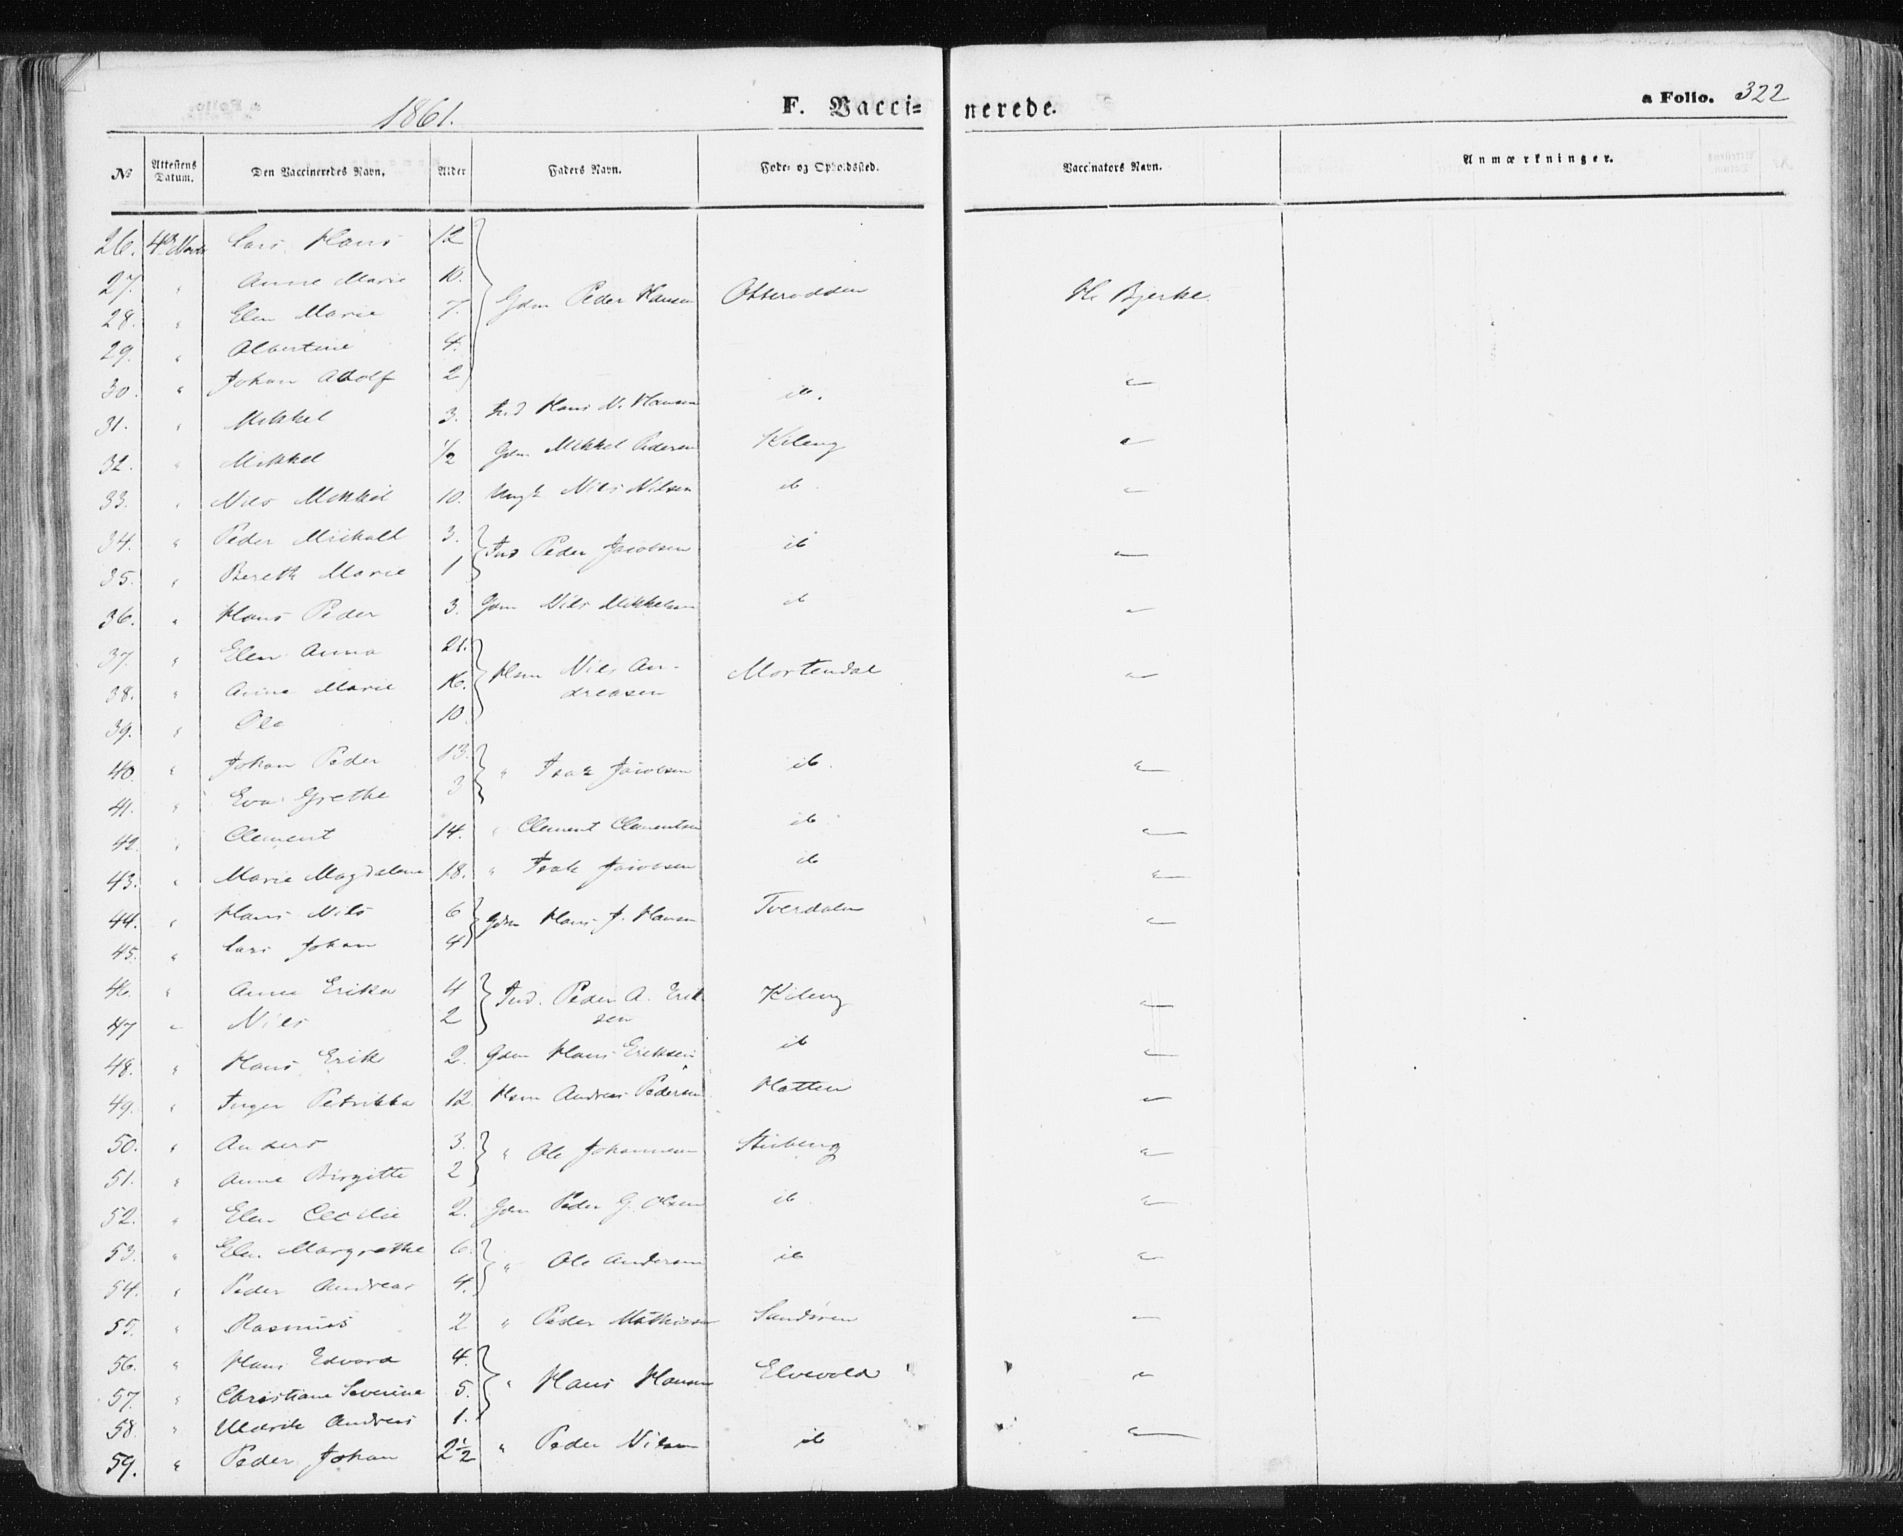 1861.
F. Vaccinerede.
a Folio. 322
No Attestens Datum. Den Vaccineredes Navn. Alder Faders Navn. Føde- og Opholdssted. Vaccinators Navn. Anmærkninger.
26. Lars Hans 12
27. " Anne Marie 10. Gdm Peder Hansen Otteraadden H. Bjerke.
28. " Elen Marie 7.
29. " Albertine 4.
30. " Johan Adolf 2
31. " Mikkel 3. Ind Hans N. Hansen ib. "
32. " Mikkel 1/2 Gdm Mikkel Pedersen Kileng "
33. " Nils Mikkel 10. Nils Nilsen ib. "
34. " Peder Michall 3.
Ind Peder Jacobsen ib "
35. " Bereth Marie 1
36. " Hans Peder 3. Gdm Nils Mikkelsen ib "
37. " Elen Anna 21.
38. " Anne Marie 16. Hsm Nils Andreasen Mortendal "
39. " Ole 10.
40. " Johan Peder 13.
" Isak Jacobsen ib. "
41. " Eva Grethe 3
42. " Clement 14. " Clement Clementsen ib "
43. " Marie Magdalena 18. " Isak Jacobsen ib "
44. " Hans Nils 6 Gdm Hans J. Hansen Tverdalen "
45. " Lars Johan 4
46. " Anne Erika 4
Ind. Peder A. Eriksen Kileng "
47 " Nils 2
48. " Hans Erik 2. Gdm Hans Eriksen ib "
49. " Inger Petrikka 12. Hsm Andreas Pedersen Hatten "
50. " Anders 3.
" Ole Johannesen "
51. " Anne Birgitte 2
52. " Elen Cecilie 2. Gdm Peder G. Olsen ib "
53. " Elen Margrethe 6.
" Ole Andersen ib "
54. " Peder Andreas 4.
55. " Rasmus 2 " Peder Mathissen Sandøren "
56. " Hans Edvard 4.
57. " Christiane Severine 5. " Hans Hansen Elvevold "
58. " Ulderik Andreas 1.
59. " Peder Johan 2 1/2 " Peder Nilsen ib "